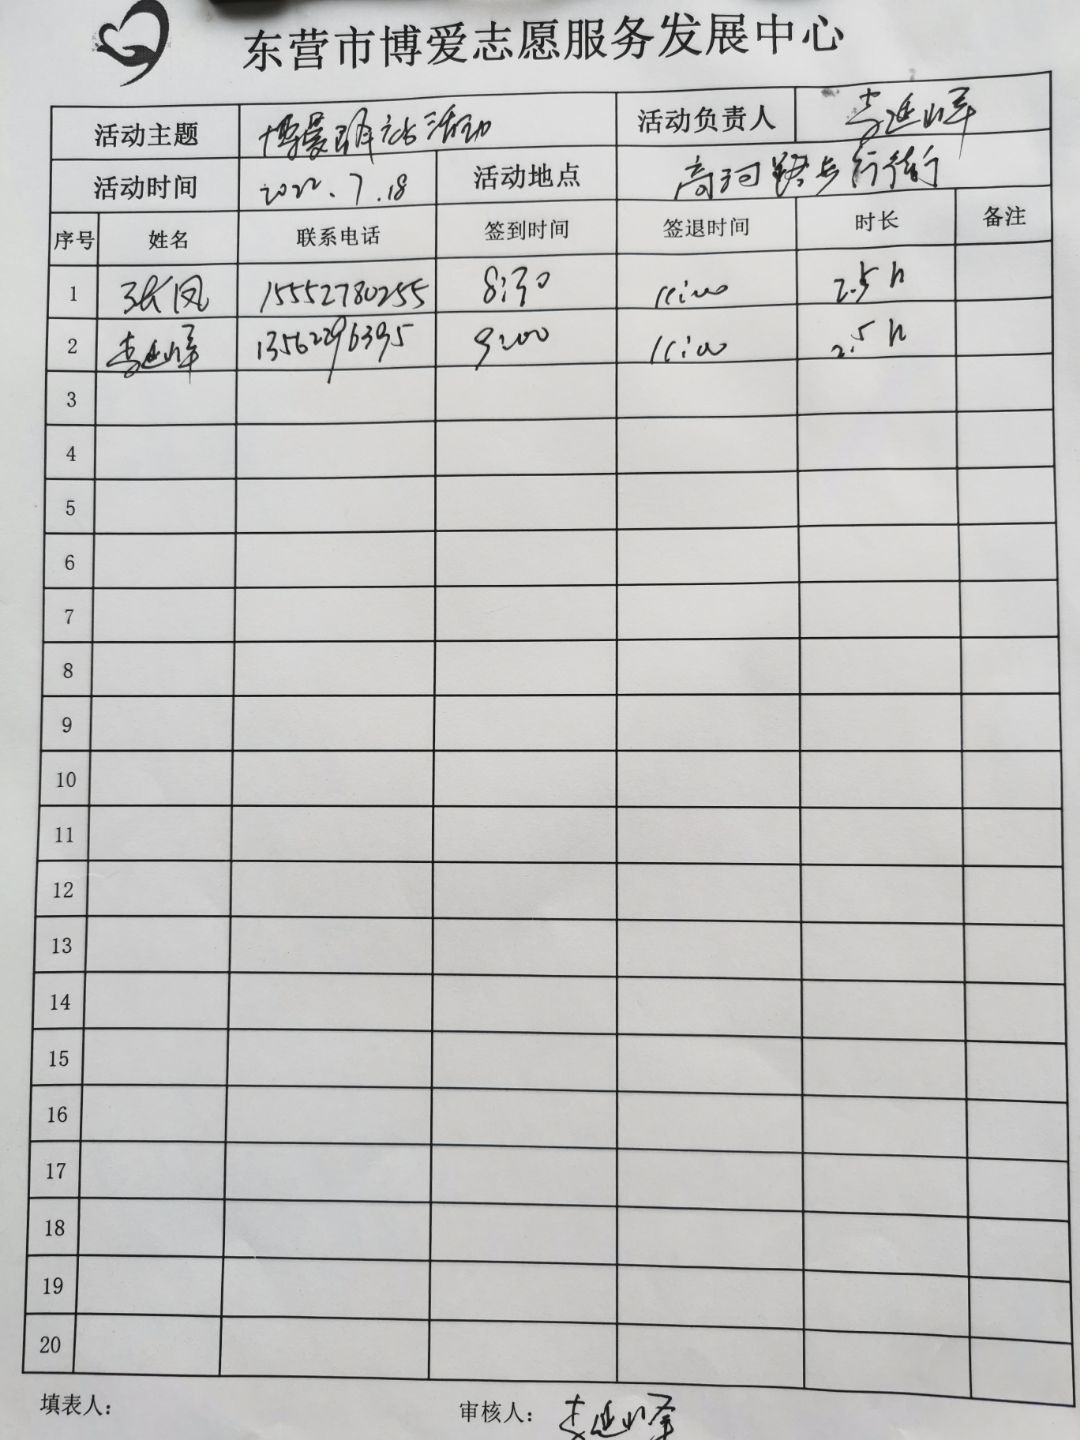 东营市博爱志愿服务发展中心
活动主题 活动负责人 李延峰
活动时间 2022.7.18 活动地点 步行街
序号 姓名 联系电话 签到时间 签退时间 时长 备注
1 张凤 15552780255 8:30 11:00 2.5h
2 李延峰 13562296395 9:00 11:00 2.5h
3
4
5
6
7
8
9
10
11
12
13
14
15
16
17
18
19
20
填表人： 审核人： 李延峰